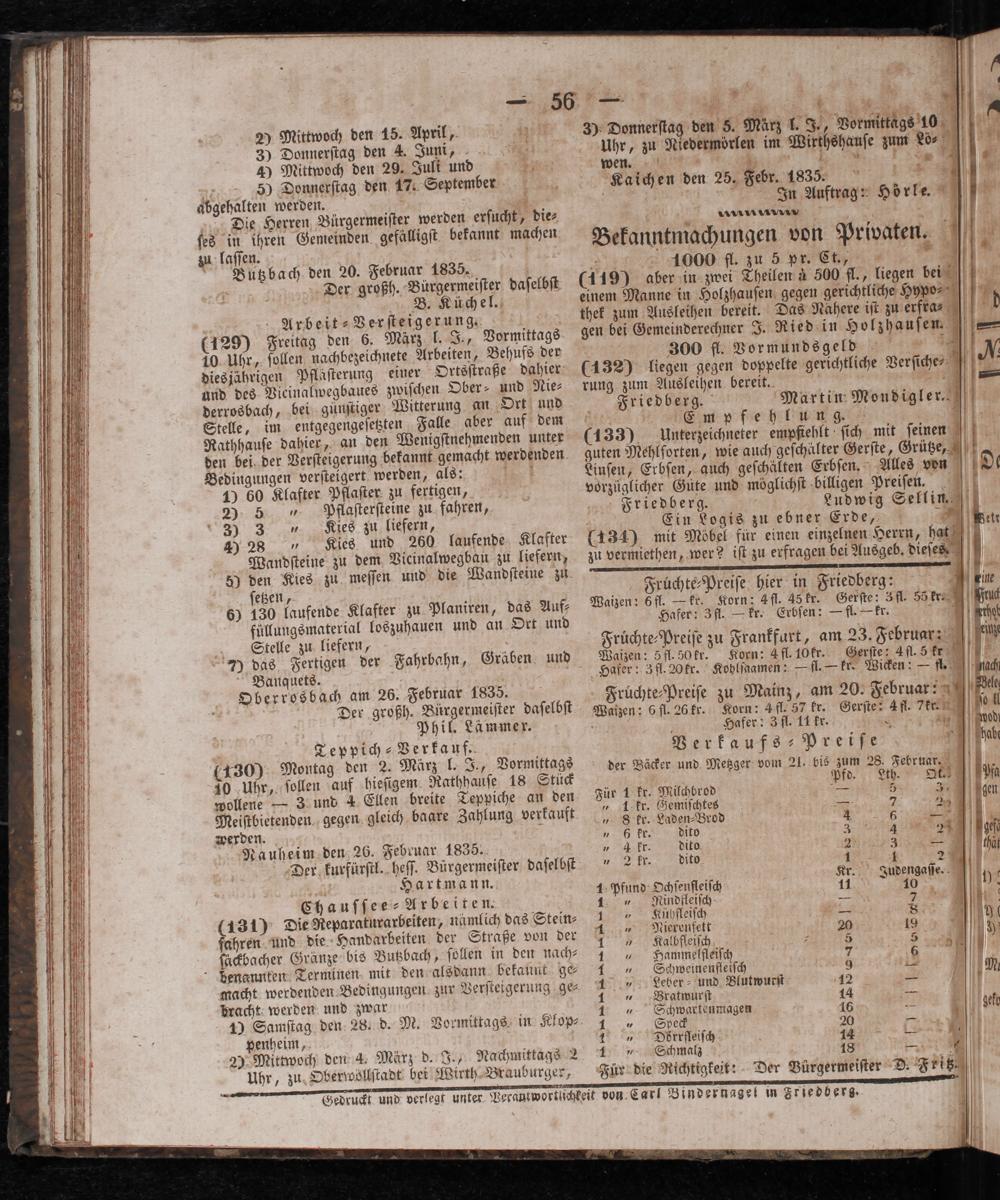 — 56 —
2) Mittwoch den 15. April,
3) Donnerſtag den 4. Juni,
4) Mittwoch den 29. Juli und
5) Donnerſtag den 17. September
abgehalten werden.
Die Herren Bürgermeiſter werden erſucht, die⸗
ſes in ihren Gemeinden gefälligſt bekannt machen
zu laſſen.
Butzbach den 20. Februar 1835.
Der großh. Bürgermeiſter daſelbſt
B. Küchel.
Arbeit⸗Verſteigerung.
(129) Freitag den 6. März l. J., Vormittags
10 Uhr, ſollen nachbezeichnete Arbeiten, Behufs der
diesjährigen Pfläſterung einer Ortsſtraße dahier
und des Vicinalwegbaues zwiſchen Ober⸗ und Nie⸗
derrosbach, bei günſtiger Witterung an Ort und
Stelle, im entgegengeſetzten Falle aber auf dem
Rathhauſe dahier, an den Wenigſtnehmenden unter
den bei der Verſteigerung bekannt gemacht werdenden
Bedingungen verſteigert werden, als:
1) 60 Klafter Pflaſter zu fertigen,
2) 5 „ Pflaſterſteine zu fahren,
3) 3 „ Kies zu liefern,
4) 28 „ Kies und 260 laufende Klafter
Wandſteine zu dem Vicinalwegbau zu liefern,
5) den Kies zu meſſen und die Wandſteine zu
ſetzen,
6) 130 laufende Klafter zu Planiren, das Auf⸗
füllungsmaterial loszuhauen und an Ort und
Stelle zu liefern,
7) das Fertigen der Fahrbahn, Gräben und
Banquets.
Oberrosbach am 26. Februar 1835.
Der großh. Bürgermeiſter daſelbſt
Phil. Lämmer.
Teppich⸗Verkauf.
(130) Montag den 2. März l. J., Vormittags
10 Uhr, ſollen auf hieſigem Rathhauſe 18 Stück
wollene — 3 und 4 Ellen breite Teppiche an den
Meiſtbietenden gegen gleich baare Zahlung verkauft
werden.
Nauheim den 26. Februar 1835.
Der kurfürſtl. heſſ. Bürgermeiſter daſelbſt
Hartmann.
Chauſſee⸗Arbeiten.
(131) Die Reparaturarbeiten, nämlich das Stein⸗
fahren und die Handarbeiten der Straße von der
ſäckbacher Gränze bis Butzbach, ſollen in den nach⸗
benannten Terminen mit den alsdann bekannt ge⸗
macht werdenden Bedingungen zur Verſteigerung ge⸗
bracht werden und zwar
1) Samſtag den 28. d. M. Vormittags in Klop⸗
penheim,
2) Mittwoch den 4. März d. J., Nachmittags 2
Uhr, zu Oberwöllſtadt bei Wirth Brauburger,
3) Donnerſtag den 5. März l. J., Vormittags 10
Uhr, zu Niedermörlen im Wirthshauſe zum Lö⸗
wen.
Kaichen den 25. Febr. 1835.
In Auftrag: Hörle.
Bekanntmachungen von Privaten.
1000 fl. zu 5 pr. Ct.,
(119) aber in zwei Theilen à 500 fl., liegen bei
einem Manne in Holzhauſen gegen gerichtliche Hypo⸗
thek zum Ausleihen bereit. Das Nähere iſt zu erfra⸗
gen bei Gemeinderechner J. Ried in Holzhauſen.
300 fl. Vormundsgeld
(132) liegen gegen doppelte gerichtliche Verſiche⸗
rung zum Ausleihen bereit.
Friedberg. Martin Mondigler.
Empfehlung.
(133) Unterzeichneter empfiehlt ſich mit ſeinen
guten Mehlſorten, wie auch geſchälter Gerſte, Grütze,
Linſen, Erbſen, auch geſchälten Erbſen. Alles von
vorzüglicher Güte und möglichſt billigen Preiſen.
Friedberg. Ludwig Sellin.
Ein Logis zu ebner Erde,
(134) mit Möbel für einen einzelnen Herrn, hat
zu vermiethen, wer? iſt zu erfragen bei Ausgeb. dieſes.
Früchte⸗Preiſe hier in Friedberg:
Waizen: 6 fl. — kr. Korn: 4 fl. 45 kr. Gerſte: 3 fl. 55 kr.
Hafer: 3 fl. — kr. Erbſen: — fl. — kr.
Früchte⸗Preiſe zu Frankfurt, am 23. Februar:
Waizen: 5 fl. 50 kr. Korn: 4 fl. 10 kr. Gerſte: 4 fl. 5 kr
Hafer: 3 fl. 20 kr. Kohlſaamen: — fl. — kr. Wicken: — fl.
Früchte⸗Preiſe zu Mainz, am 20. Februar:
Waizen: 6 fl. 26 kr. Korn: 4 fl. 57 kr. Gerſte: 4 fl. 7 kr.
Hafer: 3 fl. 11 kr.
Verkaufs⸗Preiſe
der Bäcker und Metzger vom 21. bis zum 28. Februar.
Pfd. Lth. Qt.
Für 1 kr. Milchbrod — 5 3
„ 1 kr. Gemiſchtes — 7 2
„ 8 kr. Laden⸗Brod 4 6 —
„ 6 kr. dito 3 4 2
„ 4 kr. dito 2 3 —
„ 2 kr. dito 1 1 2
Kr. Judengaſſe.
1 Pfund Ochſenfleiſch 11 10
1 „ Rindfleiſch — 7
1 „ Kühfleiſch — 8
1 „ Nierenfett 20 19
1 „ Kalbfleiſch 5 5
1 „ Hammelfleiſch 7 6
1 „ Schweinenfleiſch 9 —
1 „ Leber⸗ und Blutwurſt 12 —
1 „ Bratwurſt 14 —
1 „ Schwartenmagen 16 —
1 „ Speck 20 —
1 „ Dörrfleiſch 14 —
1 „ Schmalz 18 —
Für die Richtigkeit: Der Bürgermeiſter D. Fritz.
Gedruckt und verlegt unter Verantwortlichkeit von Carl Bindernagel in Friedberg.